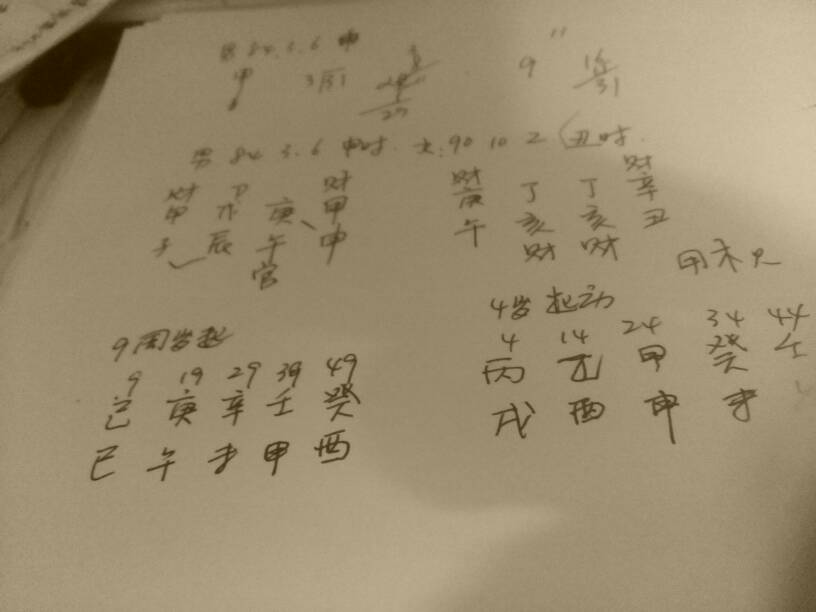 男 84.3.6 申
甲 3 31 9 " 15/31
27
男 84 3.6 申时. 女:90 10 2 (丑时.
财 财 财 财
甲 戊 庚 甲 庚 丁 丁 辛
子 辰 午 申 午 亥 亥 丑
官 财 财
9周岁起 4岁起动
9 19 29 39 49 4 14 24 34 44
己 庚 辛 壬 癸 丙 乙 甲 癸 壬
巳 午 未 申 酉 戌 酉 申 未